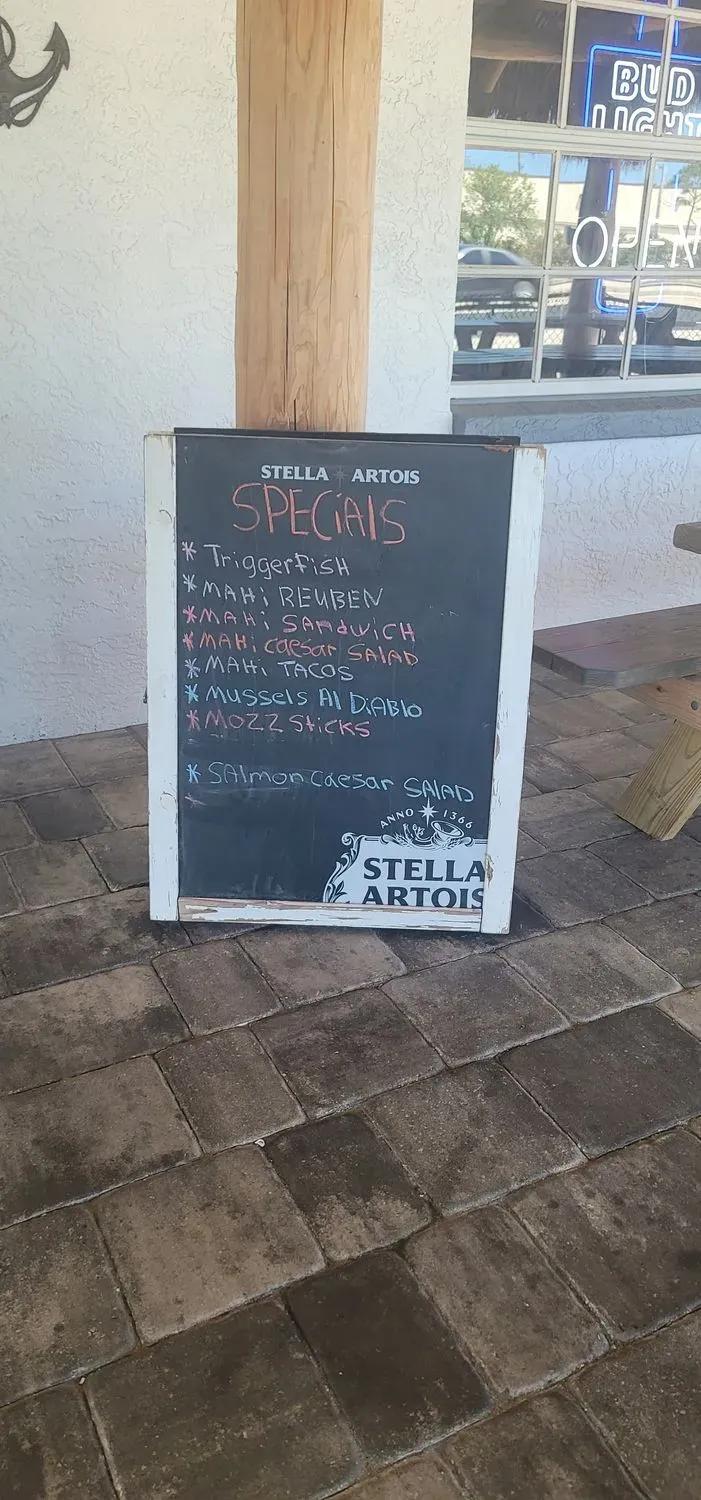 BUD
LIGHT
OPEN
STELLA ARTOIS
SPECiAlS
* TriggerFisH
* MAHi REUBEN
* MAHi SANdWiCH
* MAHi CaeSar SALAD
* MAHi TACOS
* MUSSels Al DiABlO
* MOZZ SticKS
* SAlmon Caesar SALAD
ANNO 1366
STELLA
ARTOIS